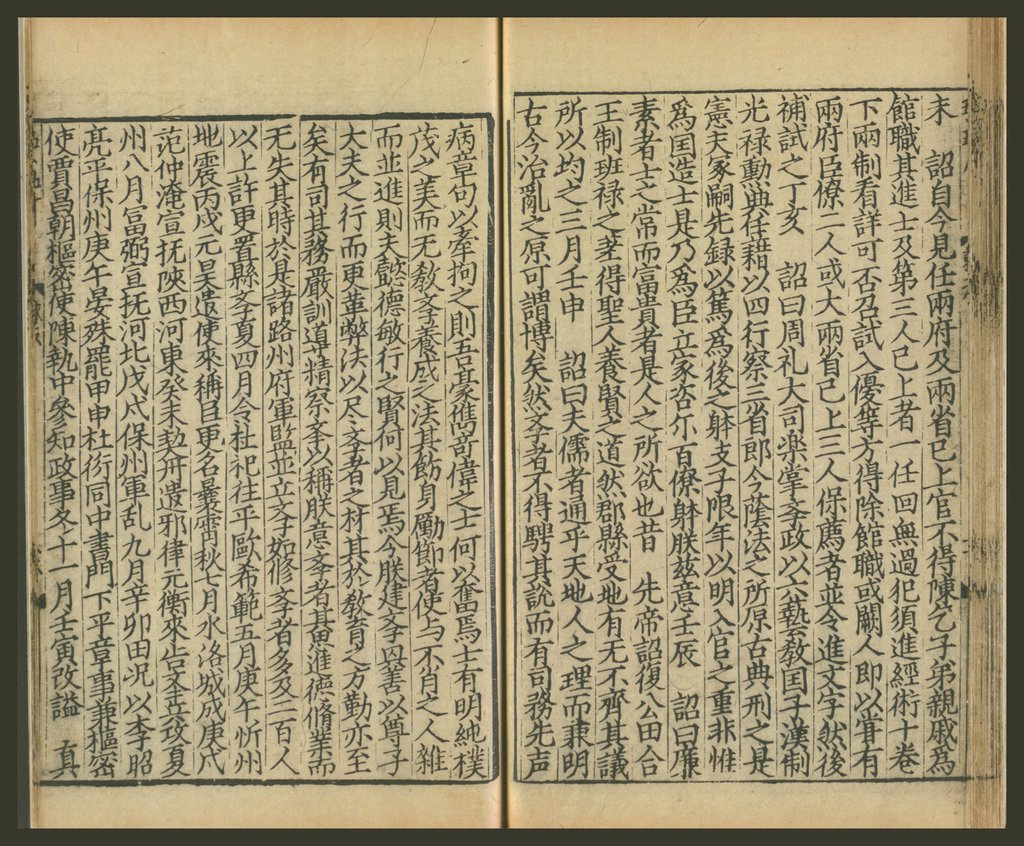 未　詔自今見任兩府及兩省已上官不得陳乞子弟親戚爲
館職其進士及第三人已上者一任回無過犯須進經術十卷
下兩制看詳可否召試入優等方得除館職或闕人即以嘗有
兩府臣僚二人或大兩省已上三人保薦者並令進文字然後
補試之丁亥　詔曰周礼大司楽掌斈政以六藝教囯子漢制
光禄勳典任籍以四行察三省郎今蔭法之所原古典刑之是
憲夫冢嗣先録以篤爲後之躰支子限年以明入官之重非惟
爲囯造士是乃爲臣立家咨尓百僚躰朕兹意壬辰　詔曰廉
素者士之常而富貴者是人之所欲也昔　先帝詔復公田合
王制班禄之差得聖人養賢之道然郡縣受地有无不齊其議
所以均之三月壬申　詔曰夫儒者通乎天地人之理而兼明
古今治亂之原可謂博矣然斈者不得騁其說而有司務先声
病章句以牽拘之則吾豪儁竒偉之士何以奮焉士有明純樸
茂之美而无敎斈養成之法其飭身勵節者使与不肖之人雜
而並進則夫懿德敏行之賢何以見焉今朕建斈興善以尊子
大夫之行而更革弊法以尽斈者之材其於敎育之方勤亦至
矣有司其務嚴訓導精察舉以稱朕意斈者其思進德脩業而
无失其時於是諸路州府軍監並立斈如修斈者多及二百人
以上許更置縣斈夏四月令杜杞往平歐希範五月庚午忻州
地震丙戌元昊遣使來稱臣更名曩霄秋七月水洛城成庚戌
范仲淹宣抚陝西河東癸未契丹遣邪律元衡來告文兵攻夏
州八月冨弼宣抚河北戊戌保州軍乱九月辛卯田况以李昭
亮平保州庚午晏殊罷甲申杜衍同中書門下平章事兼樞密
使賈昌朝樞密使陳執中參知政事冬十一月壬寅改謚　真